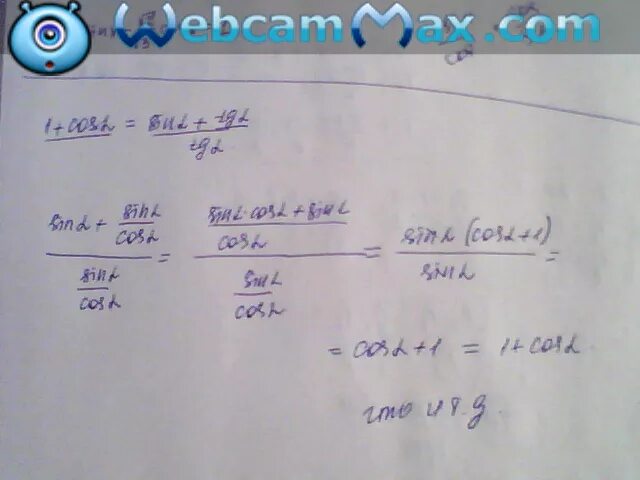 WebcamMax.com
1+cosα = sinα + tgα / tgα
sinα + sinα/cosα / sinα/cosα = sinα·cosα+sinα/cosα / sinα/cosα = sinα (cosα+1) / sinα =
= cosα+1 = 1+cosα
что и т.д.